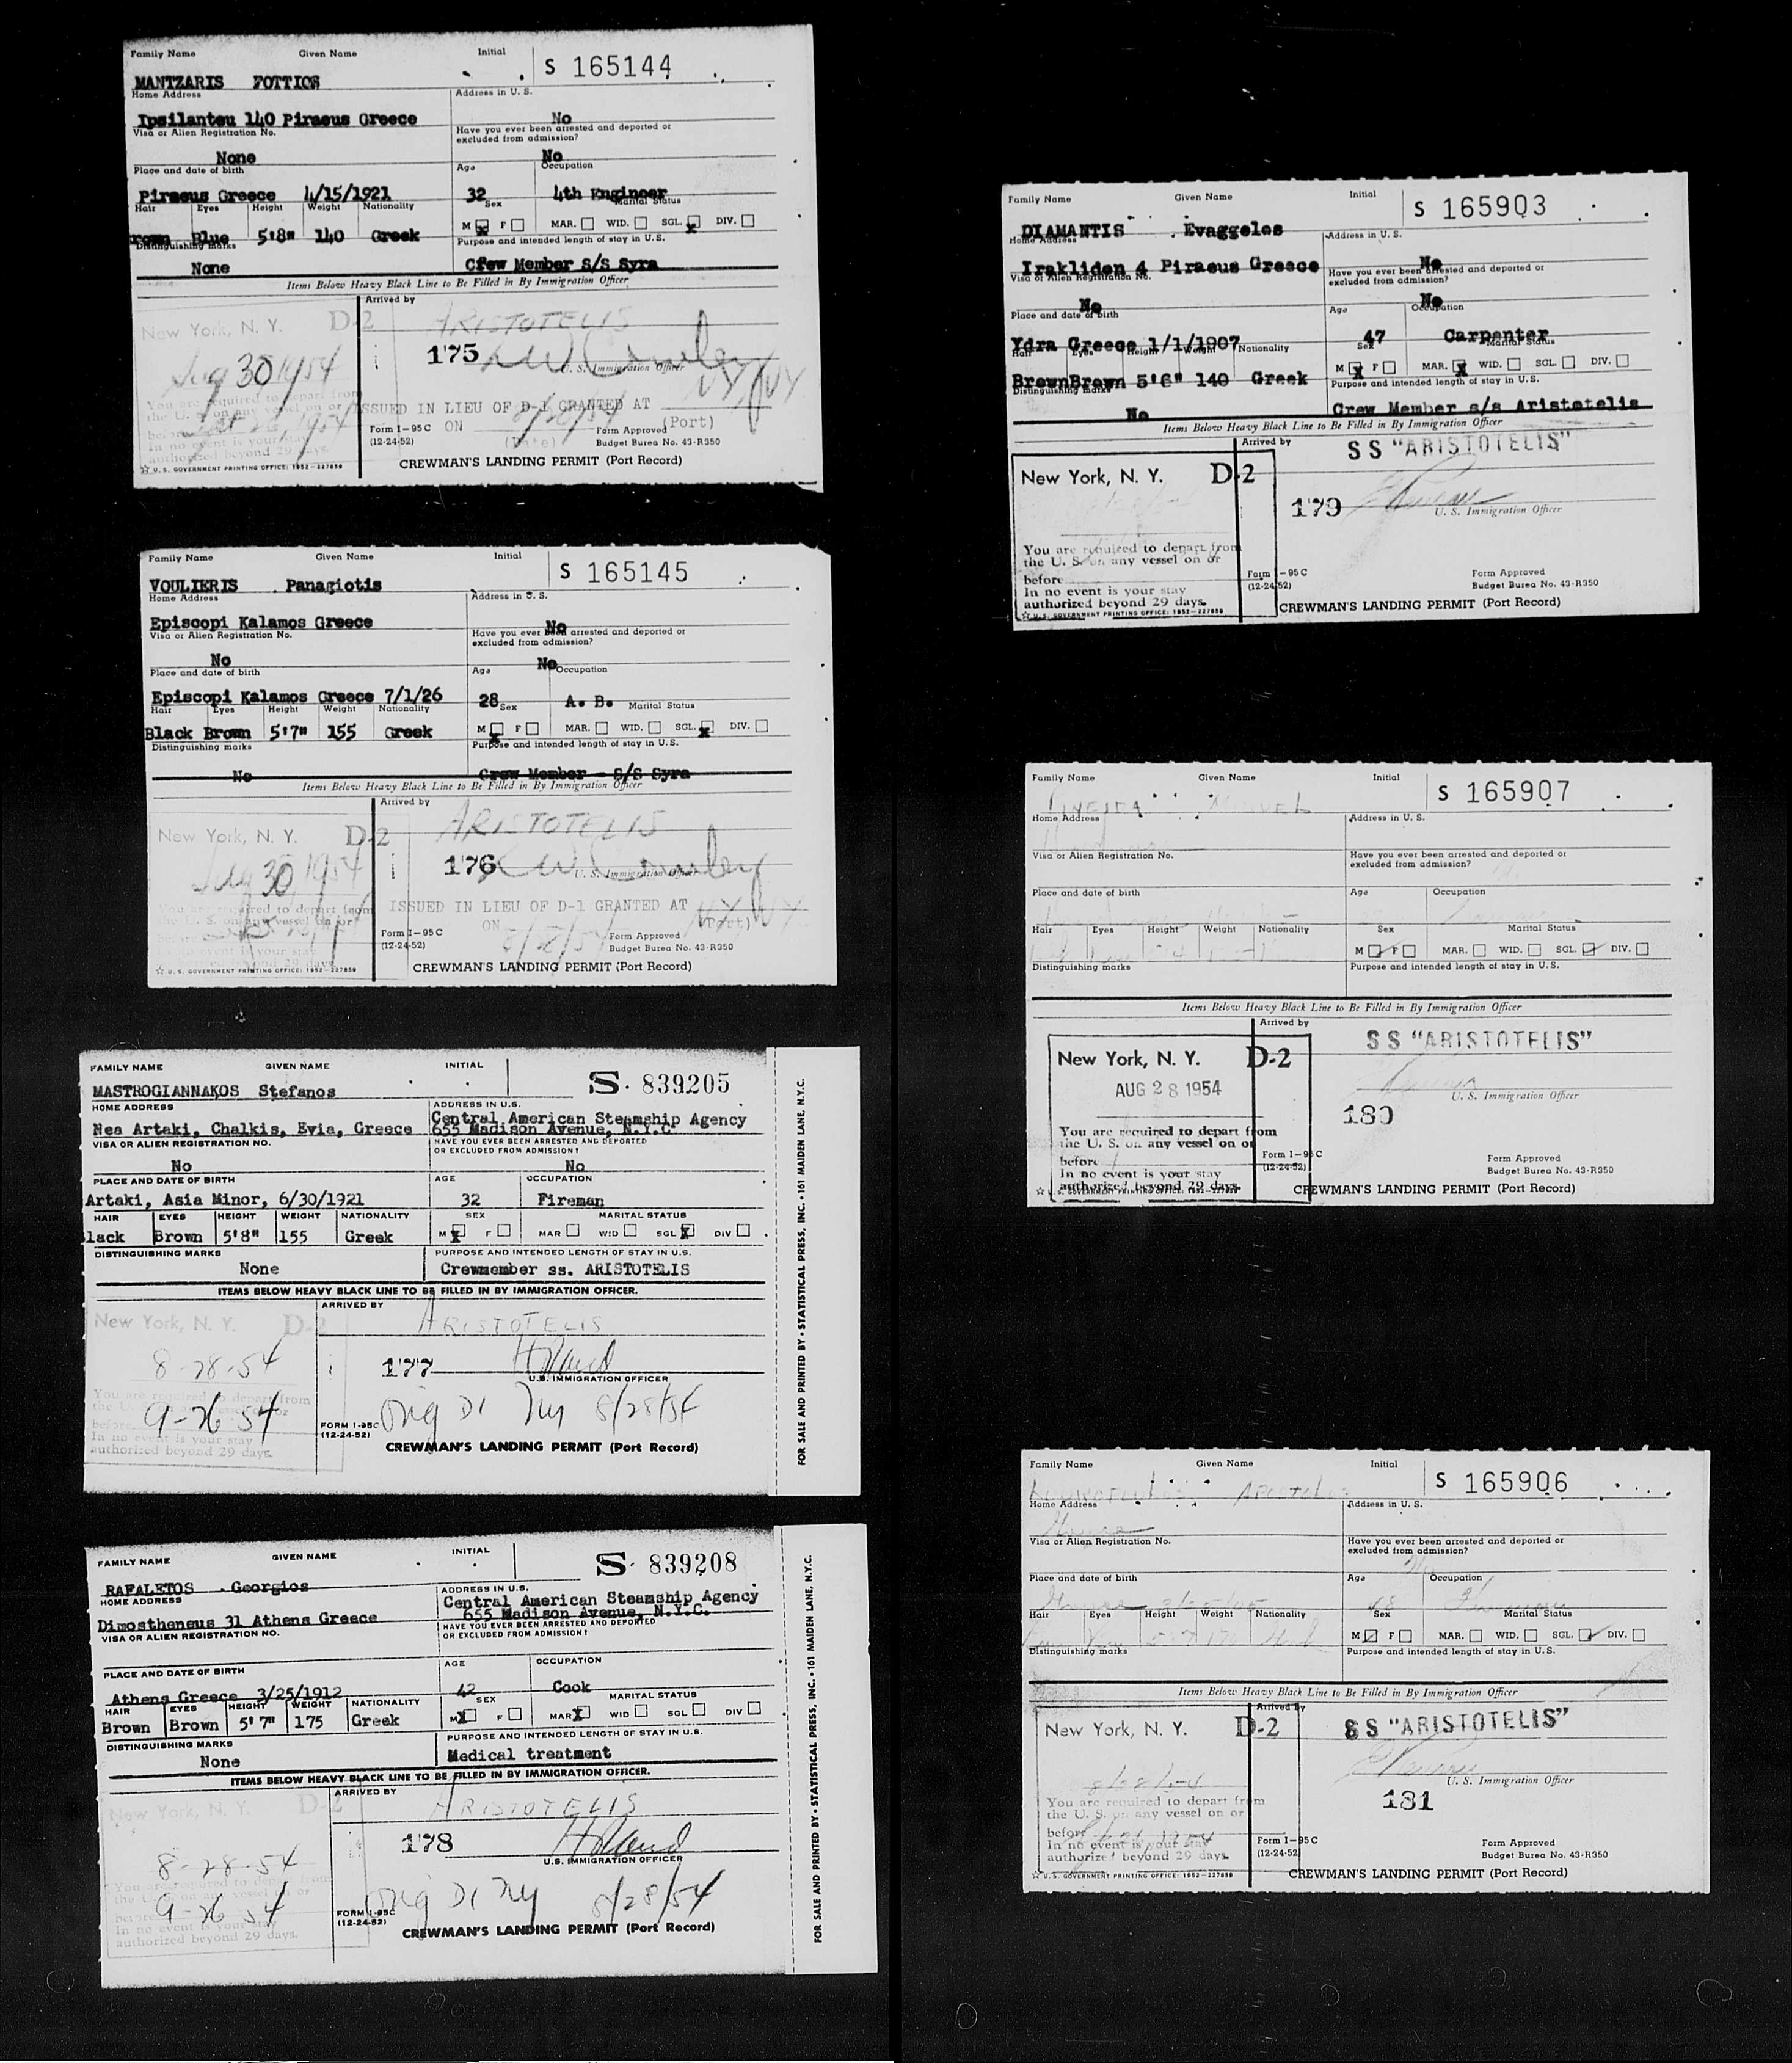 Family Name Given Name Initial
S 165144
MANTZARIS FOTTIOS
Home Address Address in U. S.
Ipsilanteu 140 Piraeus Greece No
Visa or Alien Registration No. Have you ever been arrested and deported or
excluded from admission?
None No
Place and date of birth Age Occupation
Piraeus Greece 4/15/1921 32 4th Engineer
Hair Eyes Height Weight Nationality Sex Marital Status
rown Blue 5'8" 140 Greek M X F MAR. WID. SGL. X DIV.
Distinguishing marks Purpose and intended length of stay in U.S.
None Crew Member S/S Syra
Items Below Heavy Black Line to Be Filled in By Immigration Officer
Arrived by
New York, N. Y. D-2 ARISTOTELIS
175
Aug 30 1954 U. S. Immigration Officer
NY, NY
You are required to depart from
the U. S. on any vessel on or ISSUED IN LIEU OF D-1 GRANTED AT
before Form I-95 C ON 8/28/54 Form Approved (Port)
In no event is your stay (12-24-52) (Date) Budget Burea No. 43-R350
authorized beyond 29 days.
☆ U. S. GOVERNMENT PRINTING OFFICE: 1952-227859 CREWMAN'S LANDING PERMIT (Port Record)
Family Name Given Name Initial
S 165145
VOULIERIS Panagiotis
Home Address Address in U. S.
Episcopi Kalamos Greece No
Visa or Alien Registration No. Have you ever been arrested and deported or
excluded from admission?
No No
Place and date of birth Age Occupation
Episcopi Kalamos Greece 7/1/26 28 A. B.
Hair Eyes Height Weight Nationality Sex Marital Status
Black Brown 5'7" 155 Greek M X F MAR. WID. SGL. X DIV.
Distinguishing marks Purpose and intended length of stay in U.S.
No Crew Member - S/S Syra
Items Below Heavy Black Line to Be Filled in By Immigration Officer
Arrived by
New York, N. Y. D-2 ARISTOTELIS
176
30 1954 U. S. Immigration Officer
You are required to depart from ISSUED IN LIEU OF D-1 GRANTED AT NY NY
the U. S. on any vessel on or ON 8/28/54 (Port)
Form I-95 C Form Approved
(12-24-52) Budget Burea No. 43-R350
☆ U. S. GOVERNMENT PRINTING OFFICE: 1952-227859 CREWMAN'S LANDING PERMIT (Port Record)
FAMILY NAME GIVEN NAME INITIAL
S. 839205
MASTROGIANNAKOS Stefanos
HOME ADDRESS ADDRESS IN U.S.
Central American Steamship Agency
Nea Artaki, Chalkis, Evia, Greece 655 Madison Avenue, N.Y.C
VISA OR ALIEN REGISTRATION NO. HAVE YOU EVER BEEN ARRESTED AND DEPORTED
OR EXCLUDED FROM ADMISSION?
No No
PLACE AND DATE OF BIRTH AGE OCCUPATION
Artaki, Asia Minor, 6/30/1921 32 Fireman
HAIR EYES HEIGHT WEIGHT NATIONALITY SEX MARITAL STATUS
lack Brown 5'8" 155 Greek M X F MAR WID SGL X DIV
DISTINGUISHING MARKS PURPOSE AND INTENDED LENGTH OF STAY IN U.S.
None Crewmember ss. ARISTOTELIS
ITEMS BELOW HEAVY BLACK LINE TO BE FILLED IN BY IMMIGRATION OFFICER.
ARRIVED BY
New York, N. Y. D-2 ARISTOTELIS
8-28-54 177
U.S. IMMIGRATION OFFICER
You are required to depart from
9-26 54 Orig D1 NY 8/28/54
FORM I-95C
In no event is your stay (12-24-52)
authorized beyond 29 days. CREWMAN'S LANDING PERMIT (Port Record)
FOR SALE AND PRINTED BY • STATISTICAL PRESS, INC. • 161 MAIDEN LANE, N.Y.C.
FAMILY NAME GIVEN NAME INITIAL
S. 839208
RAFALETOS Georgios
HOME ADDRESS ADDRESS IN U.S.
Central American Steamship Agency
Dimostheneus 31 Athens Greece 655 Madison Avenue, N.Y.C.
VISA OR ALIEN REGISTRATION NO. HAVE YOU EVER BEEN ARRESTED AND DEPORTED
OR EXCLUDED FROM ADMISSION?
PLACE AND DATE OF BIRTH AGE OCCUPATION
Athens Greece 3/25/1912 42 Cook
HAIR EYES HEIGHT WEIGHT NATIONALITY SEX MARITAL STATUS
Brown Brown 5'7" 175 Greek M X F MAR X WID SGL DIV
DISTINGUISHING MARKS PURPOSE AND INTENDED LENGTH OF STAY IN U.S.
None Medical treatment
ITEMS BELOW HEAVY BLACK LINE TO BE FILLED IN BY IMMIGRATION OFFICER.
ARRIVED BY
New York, N. Y. D-2 ARISTOTELIS
178
8-28-54 U.S. IMMIGRATION OFFICER
9-26 54 Orig D1 NY 8/28/54
FORM I-95C
(12-24-52)
authorized beyond 29 days. CREWMAN'S LANDING PERMIT (Port Record)
FOR SALE AND PRINTED BY • STATISTICAL PRESS, INC. • 161 MAIDEN LANE, N.Y.C.
Family Name Given Name Initial
S 165903
DIAMANTIS Evaggelos
Home Address Address in U. S.
Irakliden 4 Piraeus Greece No
Visa or Alien Registration No. Have you ever been arrested and deported or
excluded from admission?
No No
Place and date of birth Age Occupation
Ydra Greece 1/1/1907 47 Carpenter
Hair Eyes Height Weight Nationality Sex Marital Status
Brown Brown 5'6" 140 Greek M X F MAR. X WID. SGL. DIV.
Distinguishing marks Purpose and intended length of stay in U.S.
No Crew Member s/s Aristotelis
Items Below Heavy Black Line to Be Filled in By Immigration Officer
Arrived by
SS "ARISTOTELIS"
New York, N. Y. D-2
179
U. S. Immigration Officer
You are required to depart from
the U. S. on any vessel on or
before Form I-95 C Form Approved
In no event is your stay (12-24-52) Budget Burea No. 43-R350
authorized beyond 29 days.
☆ U. S. GOVERNMENT PRINTING OFFICE: 1952-227859 CREWMAN'S LANDING PERMIT (Port Record)
Family Name Given Name Initial
S 165907
Home Address Address in U. S.
Visa or Alien Registration No. Have you ever been arrested and deported or
excluded from admission?
Place and date of birth Age Occupation
Hair Eyes Height Weight Nationality Sex Marital Status
M F MAR. WID. SGL. DIV.
Distinguishing marks Purpose and intended length of stay in U.S.
Items Below Heavy Black Line to Be Filled in By Immigration Officer
Arrived by
SS "ARISTOTELIS"
New York, N. Y. D-2
AUG 28 1954
U. S. Immigration Officer
180
You are required to depart from
the U. S. on any vessel on or
before Form I-95 C Form Approved
In no event is your stay (12-24-52) Budget Burea No. 43-R350
authorized beyond 29 days.
☆ U. S. GOVERNMENT PRINTING OFFICE: 1952-227859 CREWMAN'S LANDING PERMIT (Port Record)
Family Name Given Name Initial
S 165906
Home Address Address in U. S.
Visa or Alien Registration No. Have you ever been arrested and deported or
excluded from admission?
Place and date of birth Age Occupation
Hair Eyes Height Weight Nationality Sex Marital Status
M F MAR. WID. SGL. DIV.
Distinguishing marks Purpose and intended length of stay in U.S.
Items Below Heavy Black Line to Be Filled in By Immigration Officer
Arrived by
SS "ARISTOTELIS"
New York, N. Y. D-2
U. S. Immigration Officer
8/28/54
181
You are required to depart from
the U. S. on any vessel on or
before Form I-95 C Form Approved
In no event is your stay (12-24-52) Budget Burea No. 43-R350
authorized beyond 29 days.
☆ U. S. GOVERNMENT PRINTING OFFICE: 1952-227859 CREWMAN'S LANDING PERMIT (Port Record)